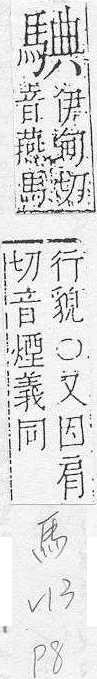 伊甸切
音燕馬
行貌○又因肩
切音煙義同
馬
V13
P8